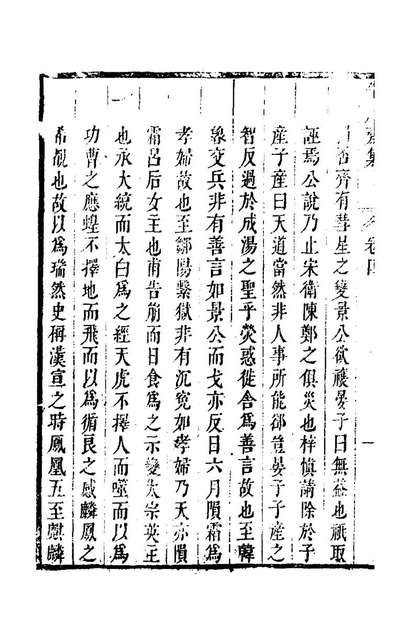 齋集
卷四
一
昔齊有彗星之變景公欲禳晏子曰無益也祇取
誣焉公說乃止宋衛陳鄭之俱災也梓慎請除於子
產子產曰天道當然非人事所能卻豈晏子子產之
智反過於成湯之聖乎熒惑徙舍為善言故也至韓
象交兵非有善言如景公而戈亦反日六月隕霜為
孝婦故也至鄒陽繫獄非有沉冤如孝婦乃天亦隕
霜呂后女主也甫告廟而日食為之示變太宗英主
也承大統而太白為之經天虎不擇人而噬而以為
功曹之應蝗不擇地而飛而以為循良之感麟鳳之
希覯也故以為瑞然史稱漢宣之時鳳凰五至麒麟